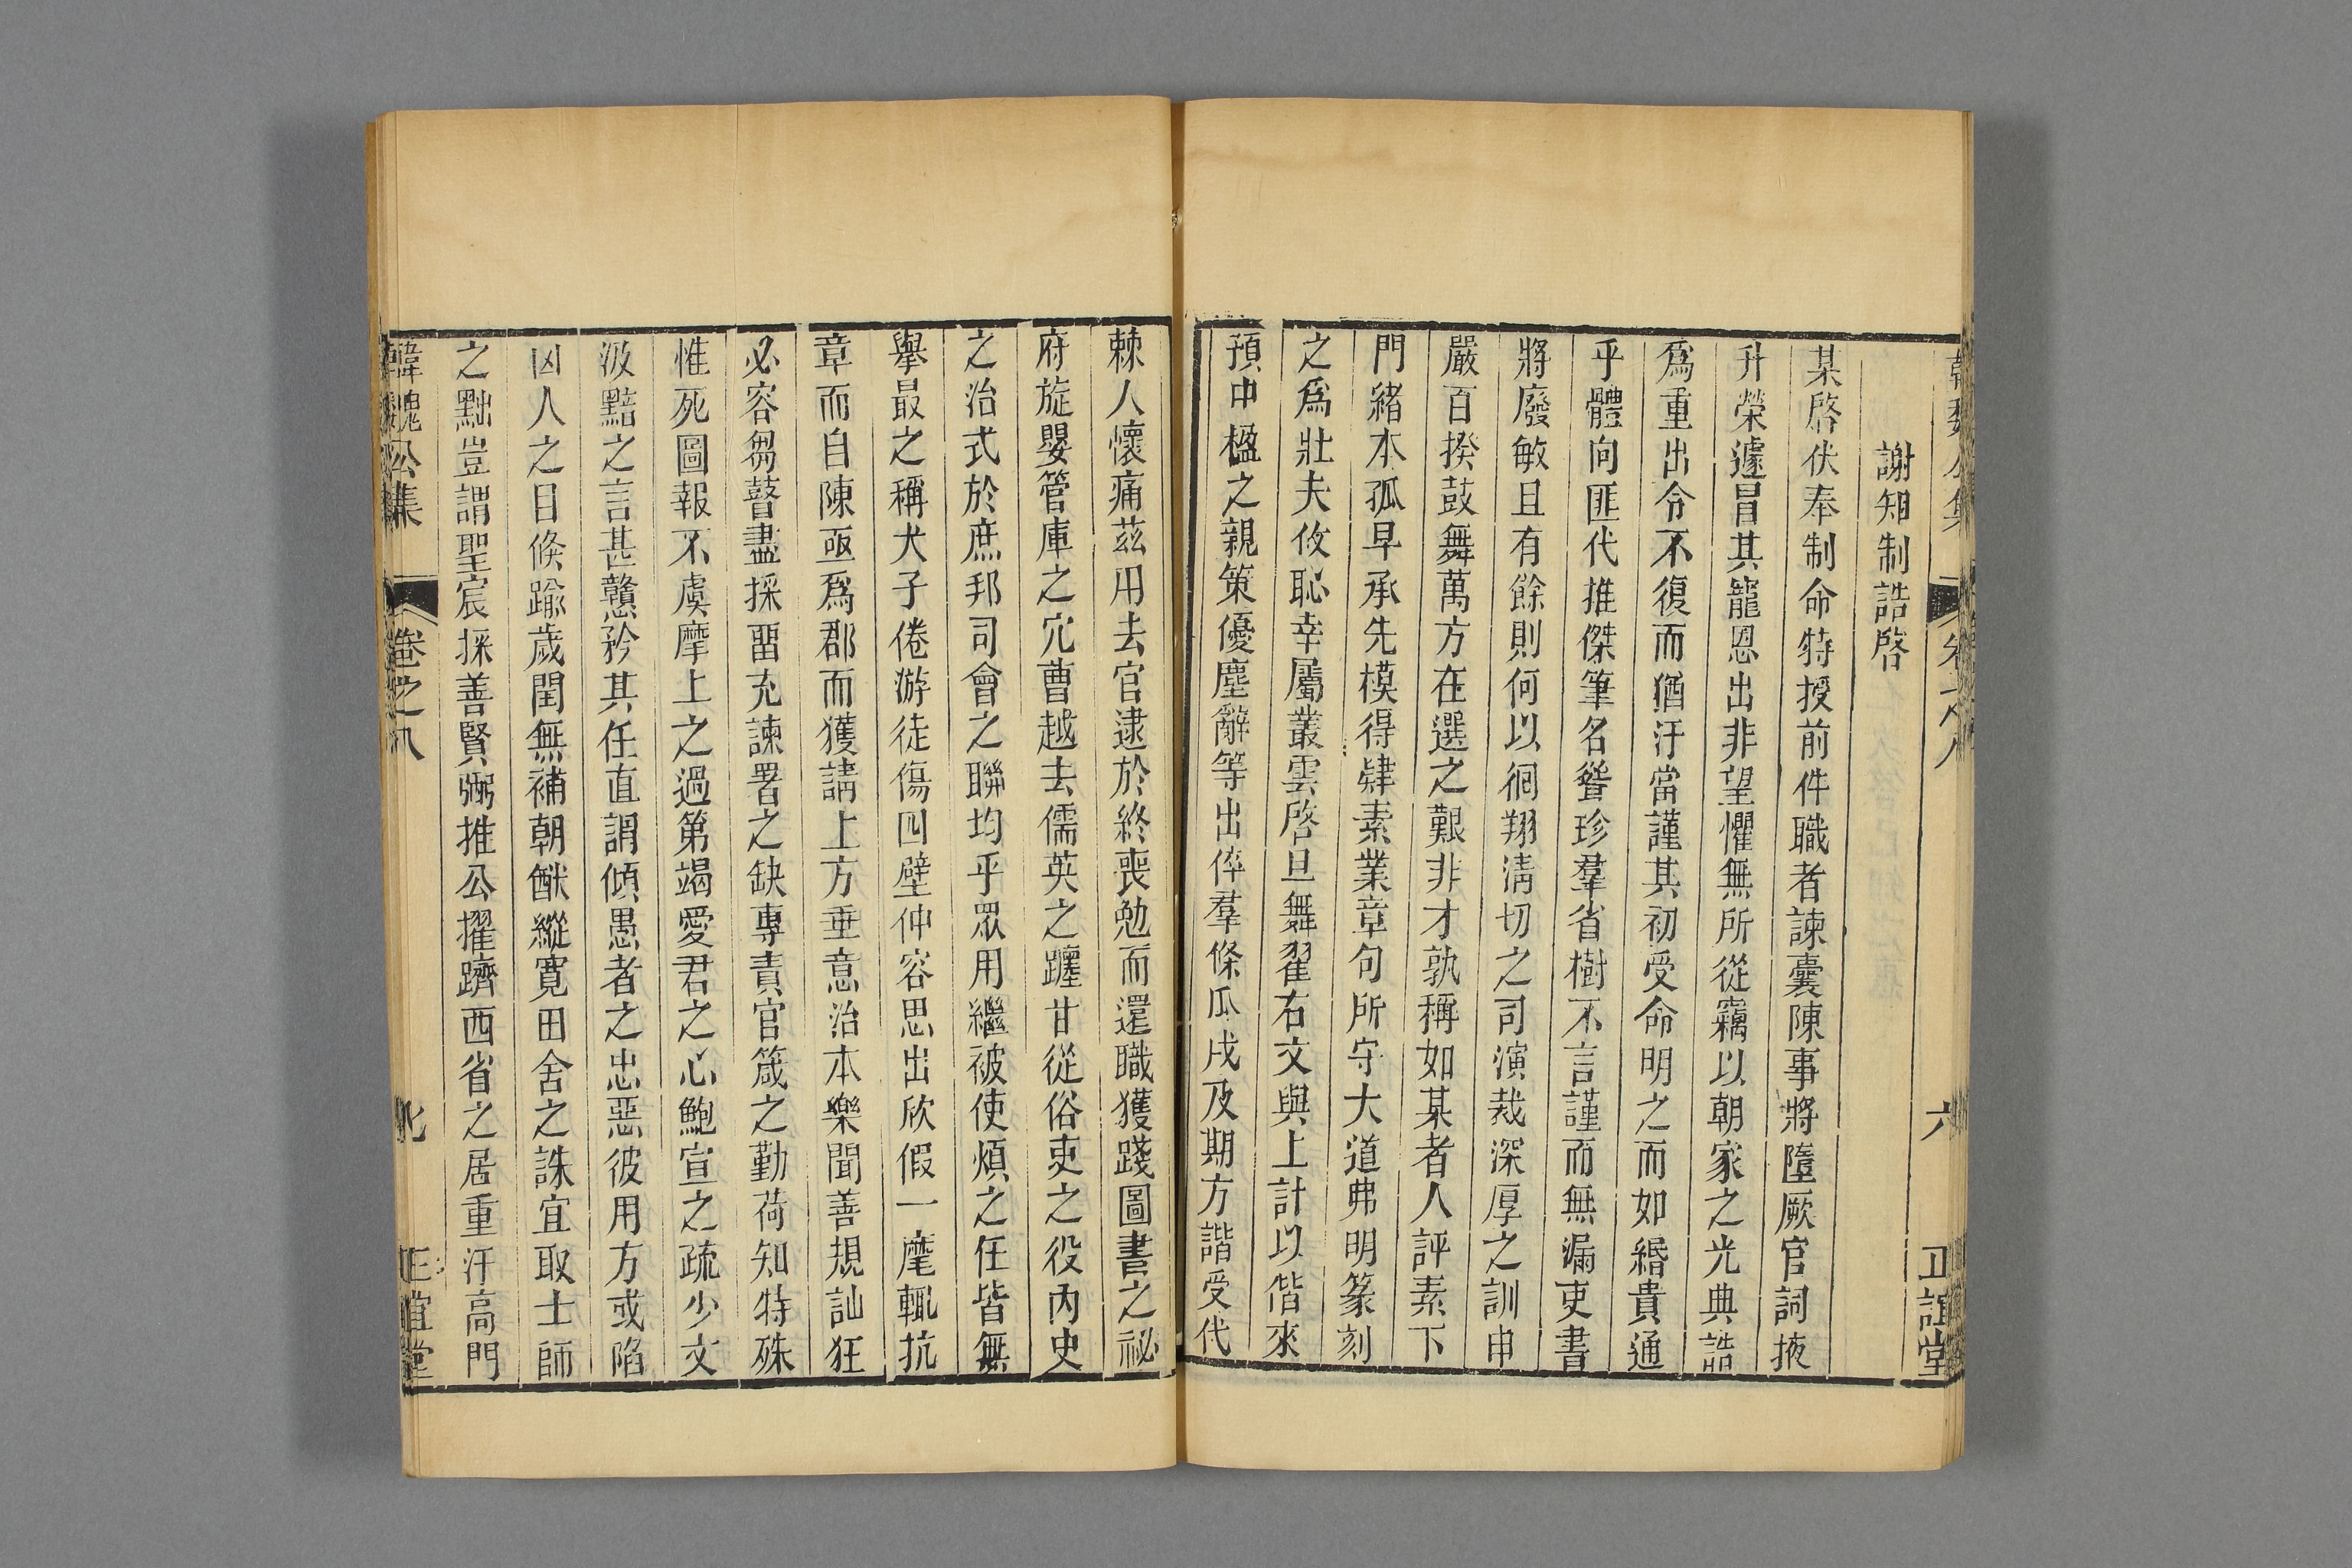 謝知制誥啓
某啓伏奉制命特授前件職者諫囊陳事將隳厥官詞掖
升榮遽冒其寵恩出非望懼無所從竊以朝家之光典誥
爲重出令不復而猶汗當謹其初受命明之而如緡貴通
乎體向匪代推傑筆名聳珍羣省樹不言謹而無漏吏書
將廢敏且有餘則何以徊翔清切之司演裁深厚之訓申
嚴百揆鼓舞萬方在選之艱非才孰稱如某者人評素下
門緒本孤早承先模得肄素業章句所守大道弗明篆刻
之爲壯夫攸恥幸屬叢雲啓旦舞翟右文與上計以偕來
預中楹之親策優塵辭等出倅羣條瓜戌及期方諧受代
棘人懷痛茲用去官逮於終喪勉而還職獲踐圖書之祕
府旋嬰管庫之冗曹越去儒英之躔甘從俗吏之役內史
之治式於庶邦司會之聯均乎眾用繼被使煩之任皆無
舉最之稱犬子倦游徒傷四壁仲容思出欣假一麾輒抗
章而自陳亟爲郡而獲請上方垂意治本樂聞善規訕狂
必容芻瞽盡採畱充諫署之缺專責官箴之勤荷知特殊
惟死圖報不虞摩上之過第竭愛君之心鮑宣之疏少文
汲黯之言甚戇矜其任直謂傾愚者之忠惡彼用方或陷
凶人之目倏踰歲閏無補朝猷縱寬田舍之誅宜取士師
之黜豈謂聖宸採善賢弼推公擢躋西省之居重汗高門
韓魏公集
卷之八
正誼堂